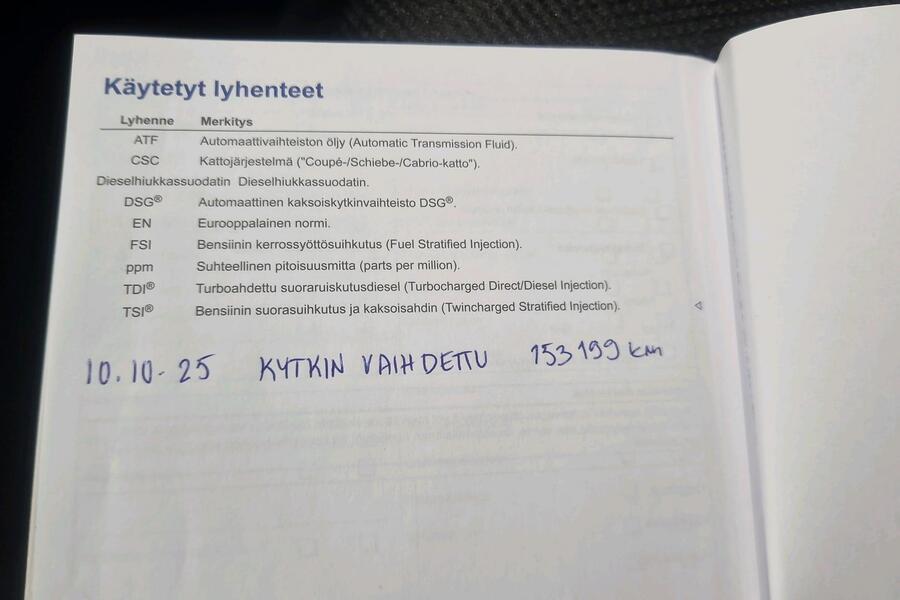 Käytetyt lyhenteet
Lyhenne Merkitys
ATF Automaattivaihteiston öljy (Automatic Transmission Fluid).
CSC Kattojärjestelmä ("Coupé-/Schiebe-/Cabrio-katto").
Dieselhiukkassuodatin Dieselhiukkassuodatin.
DSG® Automaattinen kaksoiskytkinvaihteisto DSG®.
EN Eurooppalainen normi.
FSI Bensiinin kerrossyöttösuihkutus (Fuel Stratified Injection).
ppm Suhteellinen pitoisuusmitta (parts per million).
TDI® Turboahdettu suoraruiskutusdiesel (Turbocharged Direct/Diesel Injection).
TSI® Bensiinin suorasuihkutus ja kaksoisahdin (Twincharged Stratified Injection).
10.10-25 KYTKIN VAIHDETTU 153199 km